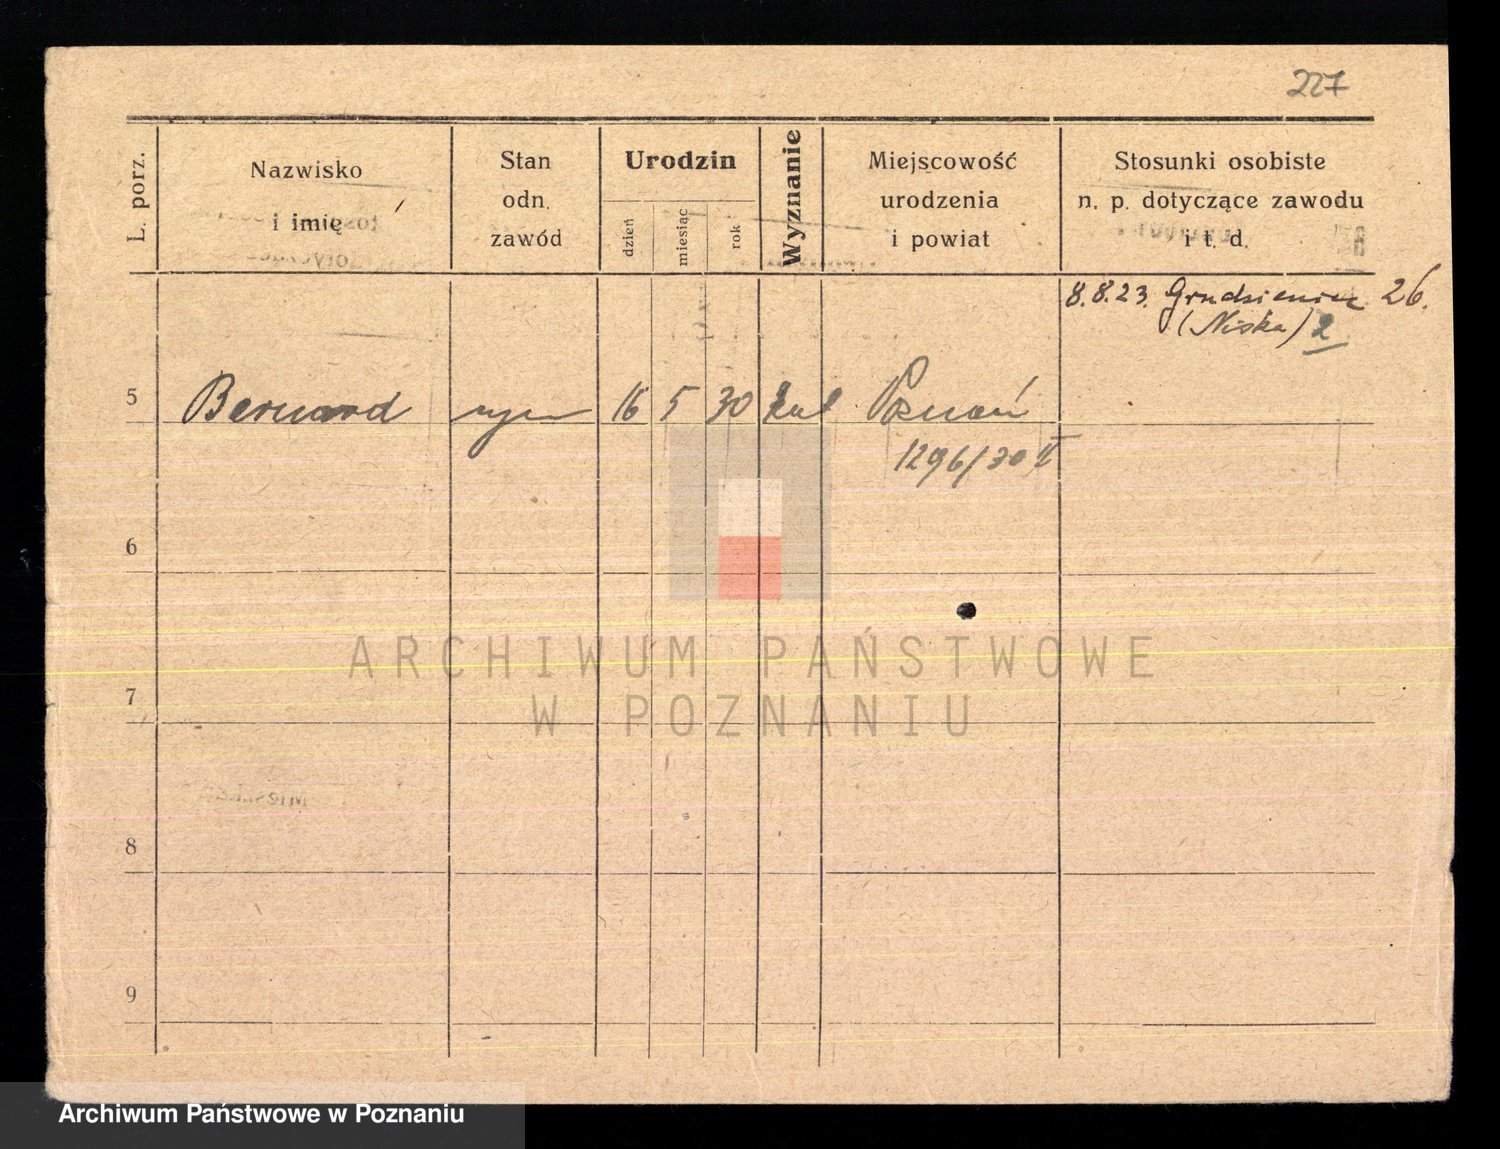 227
L. porz.
Nazwisko
i imię
Stan
odn.
zawód
Urodzin
dzień
miesiąc
rok
Wyznanie
Miejscowość
urodzenia
i powiat
Stosunki osobiste
n. p. dotyczące zawodu
i t. d.
8.8.23. Grudzieniec 26.
(Niska) 2
5 Bernard syn 16 5 30 kat Poznań
1296/30 II
6
ARCHIWUM PAŃSTWOWE
7
W POZNANIU
8
9
Archiwum Państwowe w Poznaniu